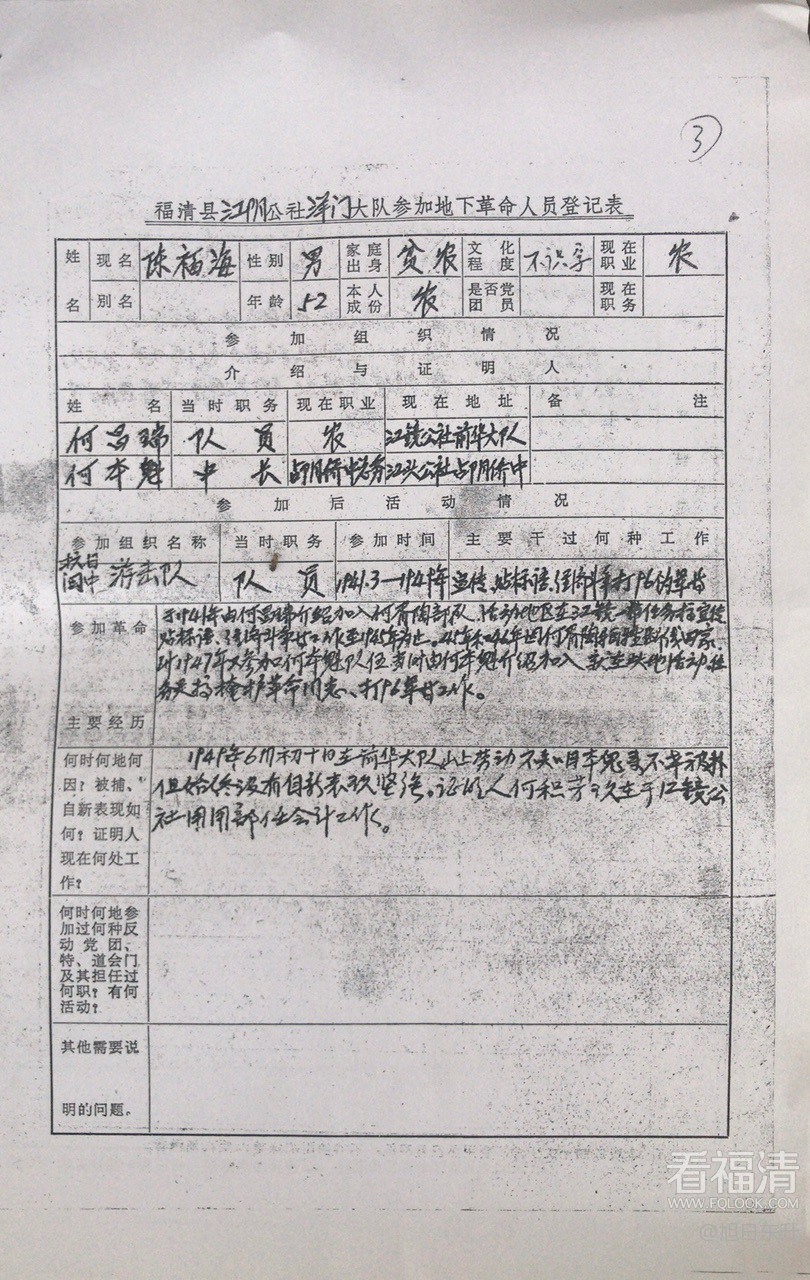 3
福清县江阴公社洋门大队参加地下革命人员登记表
姓名 现名 陈福海 性别 男 家庭出身 贫农 文化程度 不识字 现在职业 农
别名 年龄 52 本人成份 农 是否党团员 现在职务
参加组织情况
介绍与证明人
姓名 当时职务 现在职业 现在地址 备注
何昌瑞 队员 农 江镜公社前华大队
何本魁 中长 江头公社占阳侨中
参加后活动情况
参加组织名称 当时职务 参加时间 主要干过何种工作
抗日 闽中 游击队 队员 1941.3—1949年 宣传、贴标语、打伪军
参加革命
主要经历
于1941年由何昌瑞介绍加入何胥陶部队,活动地区在江镜一带任务搞宣传
贴标语、工作至1945年为止。
到1947年又参加何本魁队伍当时由何本魁介绍加入
务是搞掩护革命同志、打伪军等工作。
何时何地何
因?被捕、
自新表现如
何?证明人
现在何处工
作?
1949年6月初十日在前华大队山上劳动
但始终没有自新表现坚强。证明人何积芳现在于江镜公
社用部任会计工作。
何时何地参
加过何种反
动党团、
特、道会门
及其担任过
何职?有何
活动?
其他需要说
明的问题。
看福清
WWW.FQLOOK.COM
@旭日东升